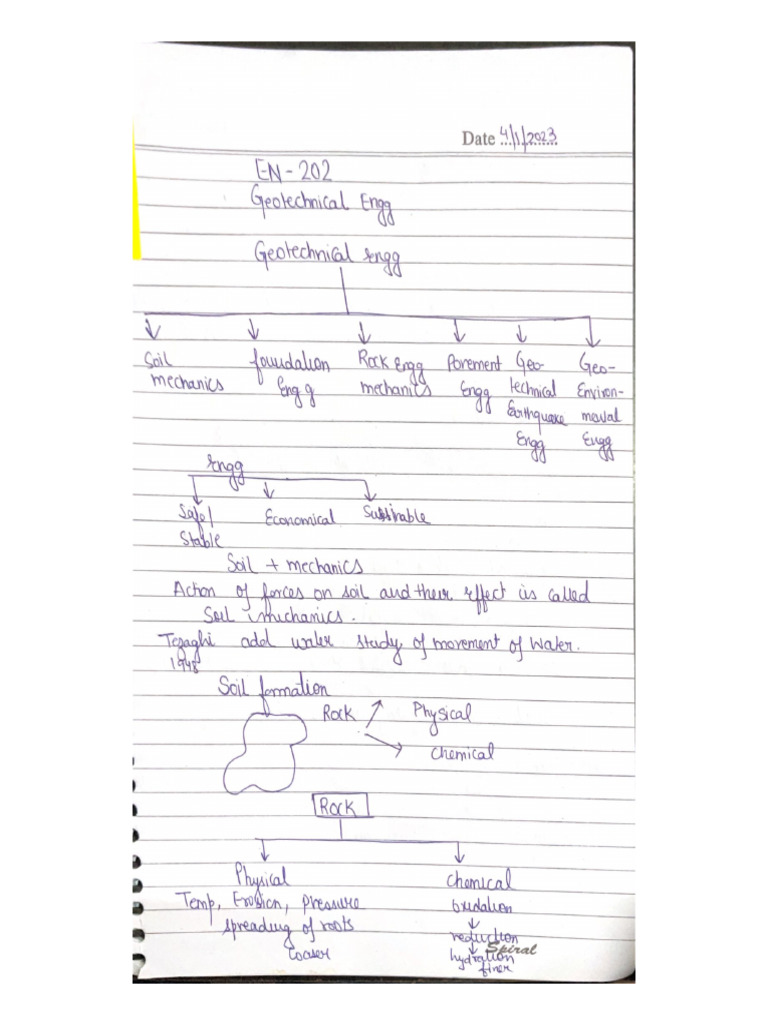 Date 4/1/2023
EN-202
Geotechnical Engg
Geotechnical Engg
Soil mechanics
foundation Engg
Rock Engg mechanics
Pavement Engg
Geo-technical Earthquake Engg
Geo-Environ-mental Engg
Engg
Safe/ Stable
Economical
Sustinable
Soil + mechanics
Action of forces on soil and their effect is called
Soil mechanics.
Tezaghi add water study of movement of water.
1948
Soil formation
Rock
Physical
Chemical
Rock
Physical
Temp, Erosion, pressure
spreading of roots
Coaser
Chemical
oxidation
reduction
hydration
finer
Spiral